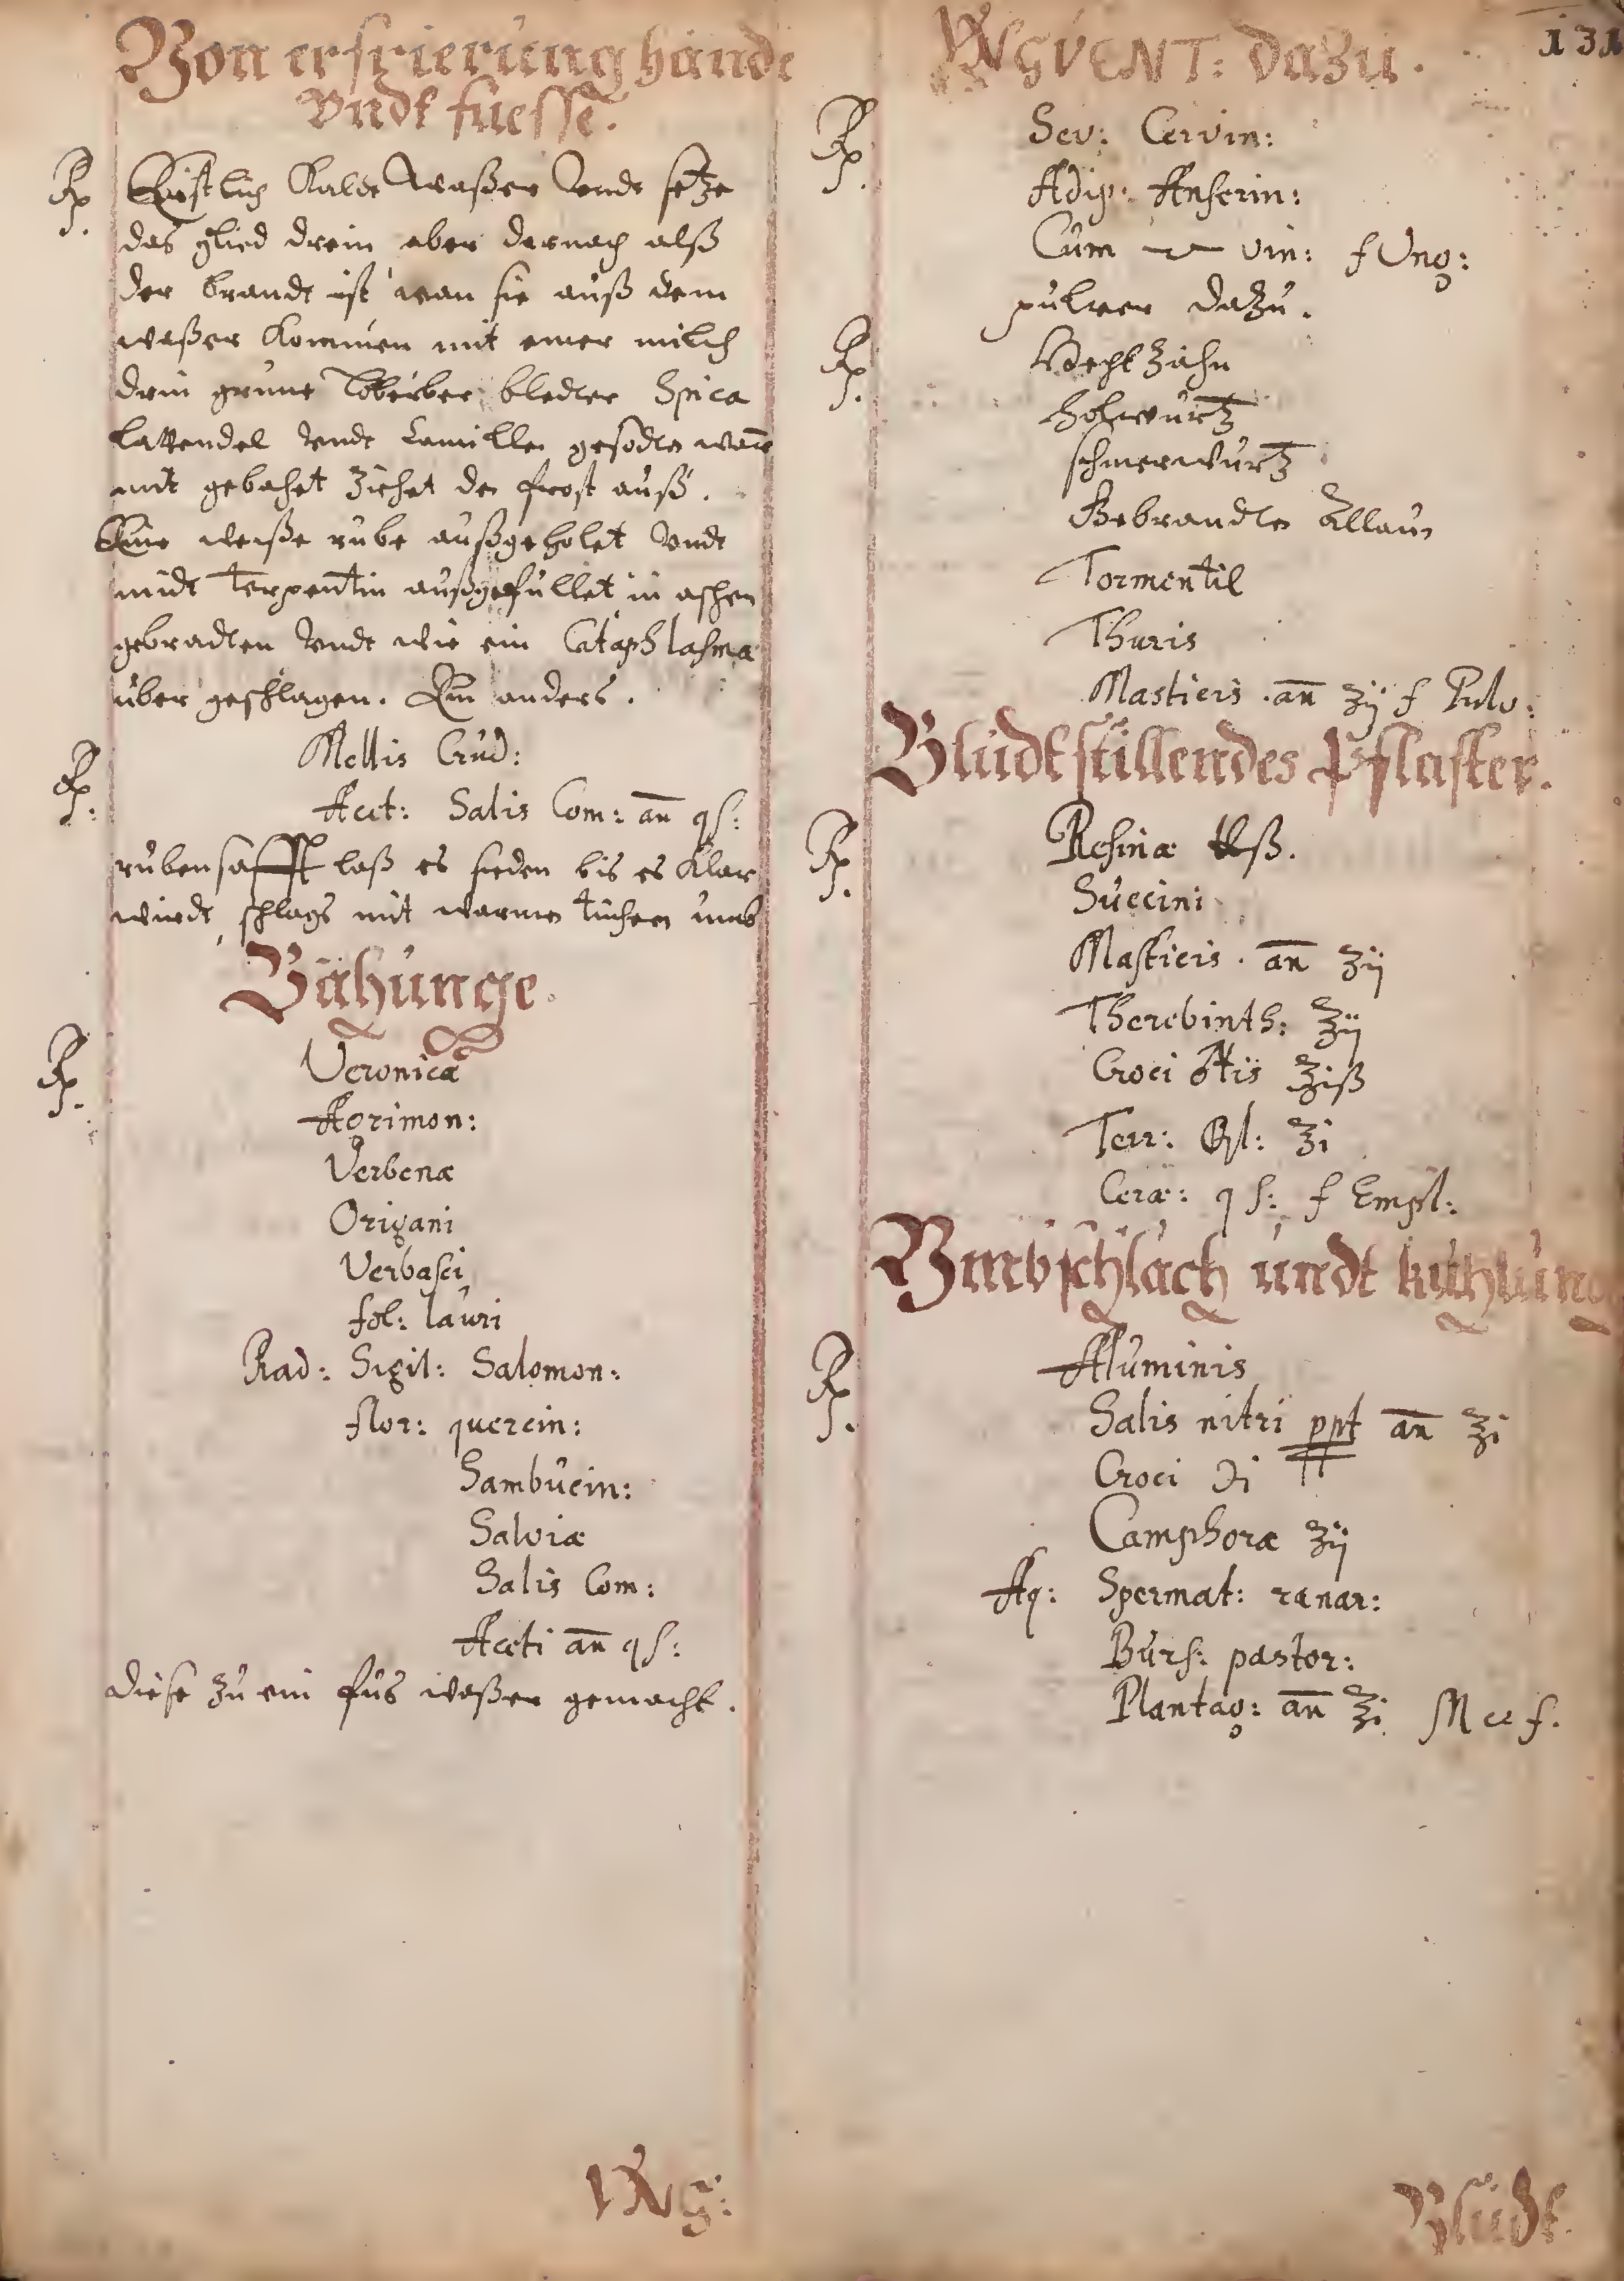 Von erfrierung hände
Vndt fuesse.
Rp. Erstlich Kaldt Waßer Vndt setze
das glied drein aber darnach alß
der brandt ist wan sie auß dem
waßer Kommen mit einer milch
drin grune Lohrber bledter Spica
lavendel Vndt Camillen gesodten
mit gebahet ziehet den frost auß.
Eine weiße rube außgeholet Vndt
midt Terpentin außgefullet in aschen
gebradten Vndt wie ein Cataphlasma
uber geschlagen. Ein anders.
Rp. Mellis Crud:
Acet: Salis Com: an qs:
rubensafft laß es sieden bis es Klar
wirdt, schlags mit warmen tuchern umb
Bähunge.
Rp. Veronicæ
Agrimon:
Verbenæ
Origani
Verbasci
fol: lauri
Rad: Sigil: Salomon:
flor: quercin:
Sambucin:
Salviæ
Salis Com:
Aceti an qs:
diese zu ein fus waßer gemacht.
Vng:
131
VNGVENT: dazu.
Rp. Sev: Cervin:
Adip: Anserin:
Cum vin: f Ung:
pulver dazu.
Rp. Hecht zähn
holwurtz
schmerwurtz
Gebrandten Allaun
Tormentil
Thuris
Masticis . an ʒij f Pulv:
Bludtstillendes Pflaster.
Rp. Resinæ ℔ß.
Succini
Masticis . an ʒij
Therebinth: ℥ij
Croci ♂tis ℥iß
Terr: Sigl: ℥i
Ceræ: qs: f Empl:
Vmbschlach undt kuhlung
Rp. Aluminis
Salis nitri ppt an ℥i
Croci ℈i
Camphoræ ʒij
Aq: Spermat: ranar:
Burs: pastor:
Plantag: an ℥i M et f.
Bludt